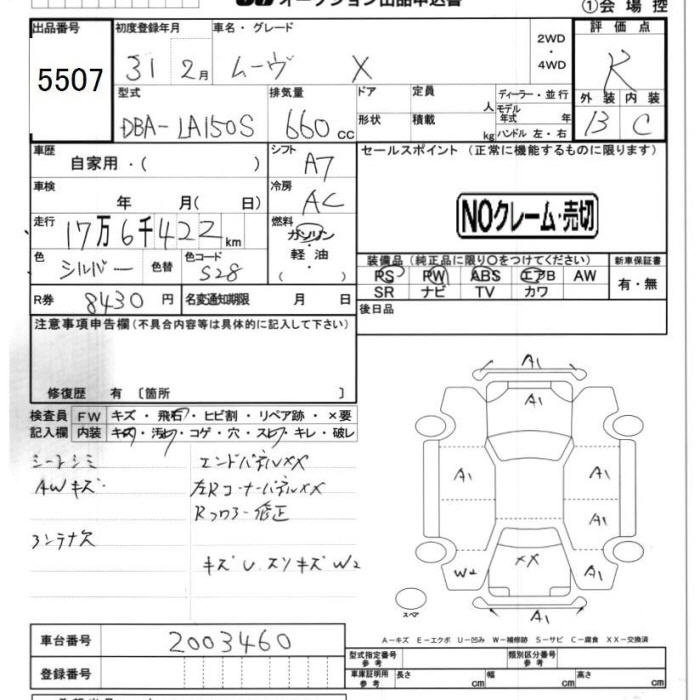 オークション出品申込書
①会場控
出品番号 初度登録年月 車名・グレード 2WD・4WD 評価点
5507 31 2月 ムーヴ X R
型式 排気量 ドア 定員 人 ディーラー・並行 外装 内装
DBA-LA150S 660cc 形状 積載 kg モデル年式 年 ハンドル 左・右 B C
車歴 自家用・( ) シフト A7 セールスポイント (正常に機能するものに限ります)
車検 年 月( 日) 冷房 AC
NOクレーム・売切
走行 17万6千422km 燃料 ガソリン・軽油・
色 シルバー 色替 色コード S28
装備品 (純正品に限り○をつけてください) 新車保証書
PS PW ABS エアB AW 有・無
SR ナビ TV カワ
R券 8430円 名変通知期限 月 日 後日品
注意事項申告欄 (不具合内容等は具体的に記入して下さい)
修復歴 有 〔箇所 〕
検査員記入欄 FW キズ・飛石・ヒビ割・リペア跡・×要
内装 キズ・汚れ・コゲ・穴・スレ・キレ・破レ
シートシミ エンドパネルXX
AWキズ 左RコーナーパネルXX
Rフロアー修正
コンテナ欠
キズU.スリキズW2
A1
A1
A1 A1
A1
W2 XX A1
A1
スペア
A-キズ E-エクボ U-凹み W-補修跡 S-サビ C-腐食 XX-交換済
車台番号 2003460
登録番号
型式指定番号 参考 類別区分番号 参考
車庫証明用 参考 長さ cm 幅 cm 高さ cm